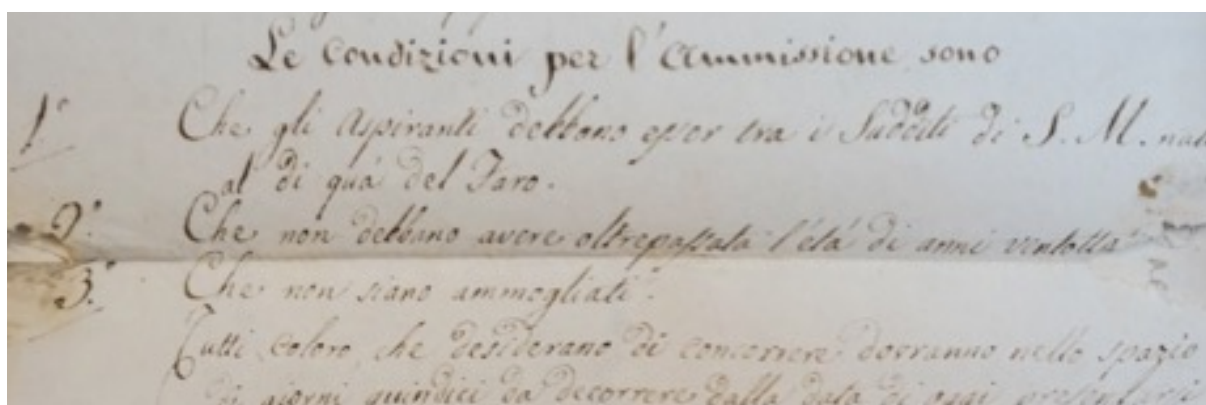 Le condizioni per l'ammissione sono
1.° Che gli Aspiranti debbono esser tra i Sudditi di S. M. nati
al di quà del Faro.
2.° Che non debbano avere oltrepassata l'età di anni ventotto
3.° Che non siano ammogliati.
Tutti coloro, che desiderano di concorrere dovranno nello spazio
di giorni quindici da decorrere dalla data di oggi presentarsi